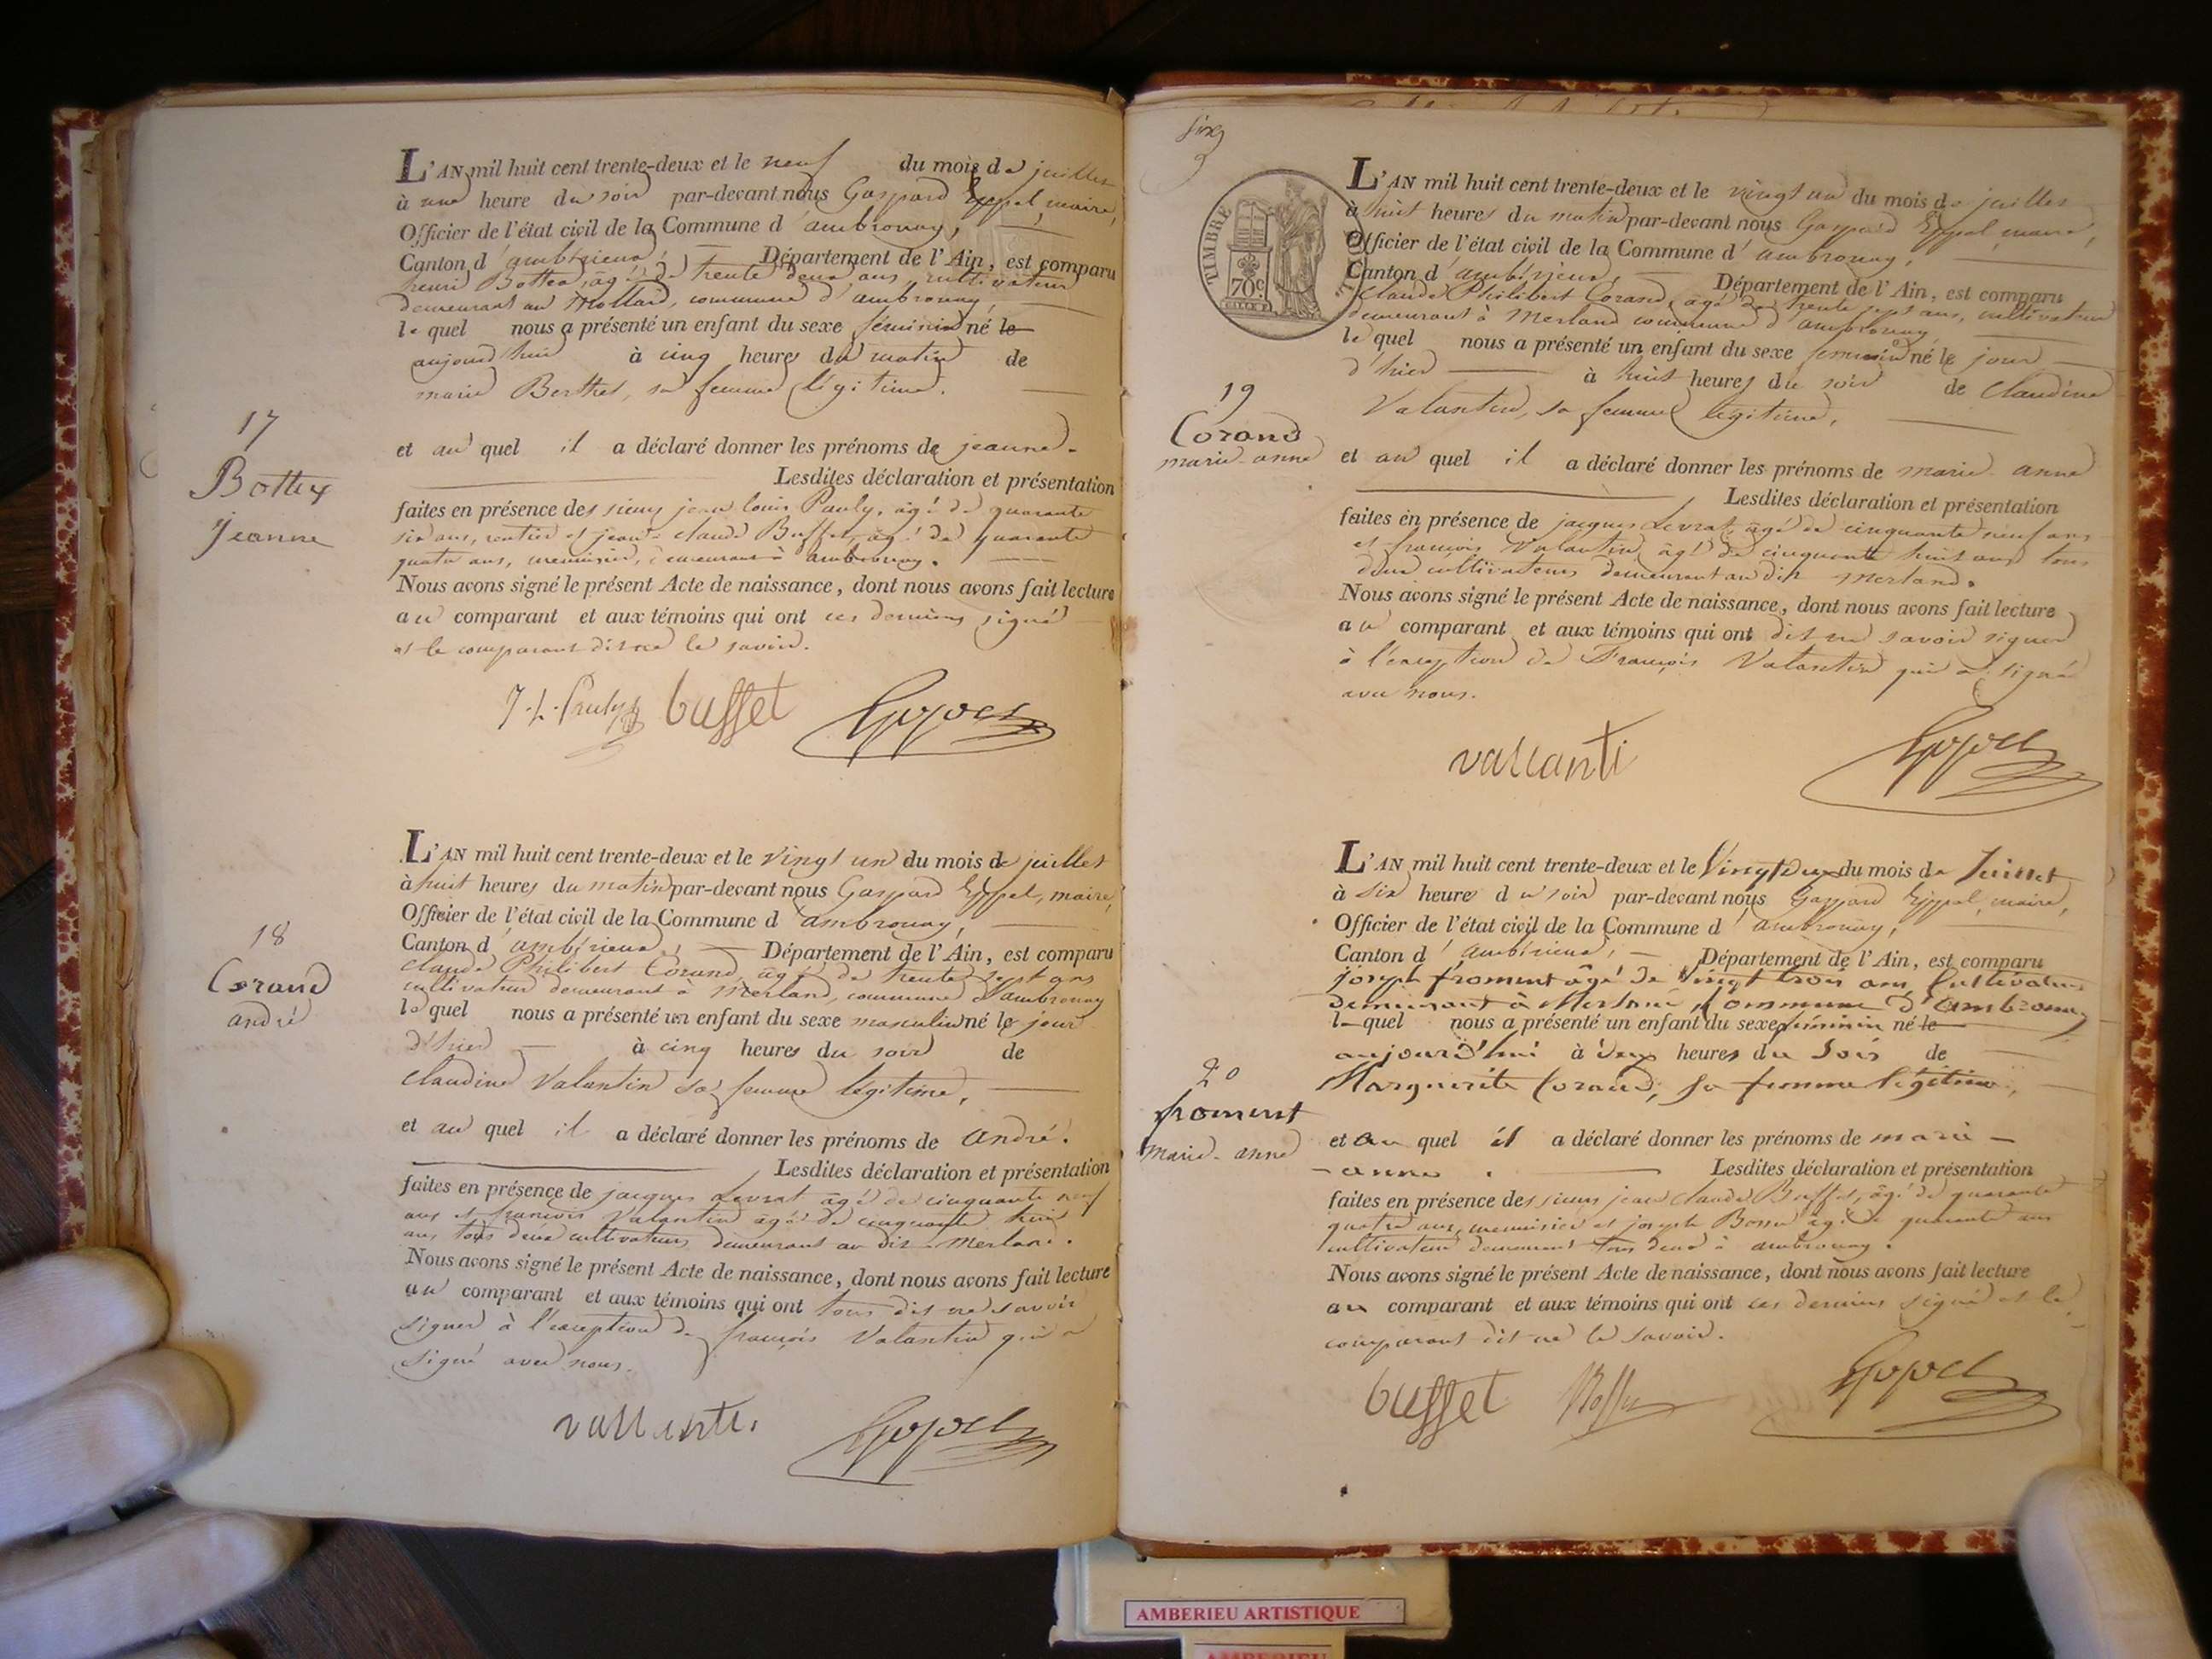 L'AN mil huit cent trente-deux et le neuf du mois de juillet
à une heure du soir par-devant nous Gaspard Eppel, maire,
Officier de l'état civil de la Commune d'ambronay,
Canton d'ambérieux, Département de l'Ain, est comparu
henri Bottex, âgé de trente deux ans, cultivateur
demeurant au Mollard, commune d'ambronay,
lequel nous a présenté un enfant du sexe féminin né le
aujourd'hui à cinq heures du matin de
marie Berthet, sa femme légitime.
17
Bottex
jeanne
et au quel il a déclaré donner les prénoms de jeanne.
Lesdites déclaration et présentation
faites en présence des sieurs jean louis Pauly, âgé de quarante
six ans, rentier et jean claude Buffet, âgé de quarante
quatre ans, menuisier, demeurant à ambronay.
Nous avons signé le présent Acte de naissance, dont nous avons fait lecture
au comparant et aux témoins qui ont ces derniers signé
et le comparant dit ne le savoir.
J. L. Pauly buffet
L'AN mil huit cent trente-deux et le vingt un du mois de juillet
à huit heures du matin par-devant nous Gaspard Eppel, maire,
Officier de l'état civil de la Commune d'ambronay,
Canton d'ambérieux, Département de l'Ain, est comparu
claude Philibert Corand, âgé de trente sept ans
cultivateur demeurant à Merland, commune d'ambronay
lequel nous a présenté un enfant du sexe masculin né le jour
d'hier à cinq heures du soir de
claudine Valantin sa femme légitime,
18
Corand
andré
et au quel il a déclaré donner les prénoms de andré.
Lesdites déclaration et présentation
faites en présence de jacques Levrat âgé de cinquante neuf
ans et françois Valantin âgé de cinquante huit
ans tous deux cultivateurs demeurant au dit Merland.
Nous avons signé le présent Acte de naissance, dont nous avons fait lecture
au comparant et aux témoins qui ont tous dit ne savoir
signer à l'exception de françois Valantin qui a
signé avec nous.
vallanti
TIMBRE
70c
L'AN mil huit cent trente-deux et le vingt un du mois de juillet
à huit heures du matin par-devant nous Gaspard Eppel maire,
Officier de l'état civil de la Commune d'ambronay,
Canton d'ambérieux, Département de l'Ain, est comparu
claude Philibert Corand, âgé de trente sept ans, cultivateur
demeurant à Merland commune d'ambronay
lequel nous a présenté un enfant du sexe feminin né le jour
d'hier à huit heures du soir de claudine
Valantin, sa femme légitime,
19
Corand
marie-anne
et au quel il a déclaré donner les prénoms de marie-anne
Lesdites déclaration et présentation
faites en présence de jacques Levrat, âgé de cinquante neuf ans
et françois Valantin âgé de cinquante huit ans tous
deux cultivateurs demeurant au dit Merland.
Nous avons signé le présent Acte de naissance, dont nous avons fait lecture
au comparant et aux témoins qui ont dit ne savoir signer
à l'exception de François Valantin qui a signé
avec nous.
vallanti
L'AN mil huit cent trente-deux et le Vingt Deux du mois de Juillet
à six heures du soir par-devant nous Gaspard Eppel, maire,
Officier de l'état civil de la Commune d'ambronay,
Canton d'ambérieux, Département de l'Ain, est comparu
joseph froment âgé de Vingt trois ans, Cultivateur
demeurant à Merland, Commune d'ambronay
lequel nous a présenté un enfant du sexe féminin né le
aujourd'hui à Deux heures du Soir de
Marguerite Corand, sa femme légitime,
20
froment
marie-anne
et au quel il a déclaré donner les prénoms de marie-
-anne. Lesdites déclaration et présentation
faites en présence des sieurs jean claude Buffet, âgé de quarante
quatre ans, menuisier et joseph Bossu âgé de quarante ans
cultivateur demeurant tous deux à ambronay.
Nous avons signé le présent Acte de naissance, dont nous avons fait lecture
au comparant et aux témoins qui ont ces derniers signé et le
comparant dit ne le savoir.
buffet Bossu
AMBERIEU ARTISTIQUE
AMBERIEU